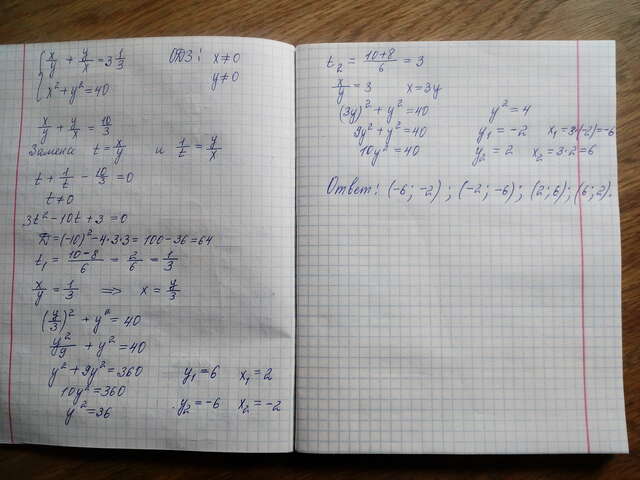 x/y + y/x = 3 1/3 ОДЗ: x≠0
x² + y² = 40 y≠0
x/y + y/x = 10/3
Замена t = x/y и 1/t = y/x
t + 1/t - 10/3 = 0
t≠0
3t² - 10t + 3 = 0
D = (-10)² - 4·3·3 = 100 - 36 = 64
t₁ = (10-8)/6 = 2/6 = 1/3
x/y = 1/3 ⟹ x = y/3
(y/3)² + y² = 40
y²/9 + y² = 40
y² + 9y² = 360 y₁ = 6 x₁ = 2
10y² = 360
y² = 36 y₂ = -6 x₂ = -2
t₂ = (10+8)/6 = 3
x/y = 3 x = 3y
(3y)² + y² = 40 y² = 4
9y² + y² = 40 y₁ = -2 x₁ = 3·(-2) = -6
10y² = 40 y₂ = 2 x₂ = 3·2 = 6
Ответ: (-6; -2) ; (-2; -6); (2; 6); (6; 2).